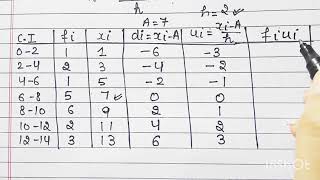 h
A=7 h=2
C.I fi xi di=xi-A ui=xi-A/h fiui
0-2 1 1 -6 -3
2-4 2 3 -4 -2
4-6 1 5 -2 -1
6-8 5 7 0 0
8-10 6 9 2 1
10-12 2 11 4 2
12-14 3 13 6 3